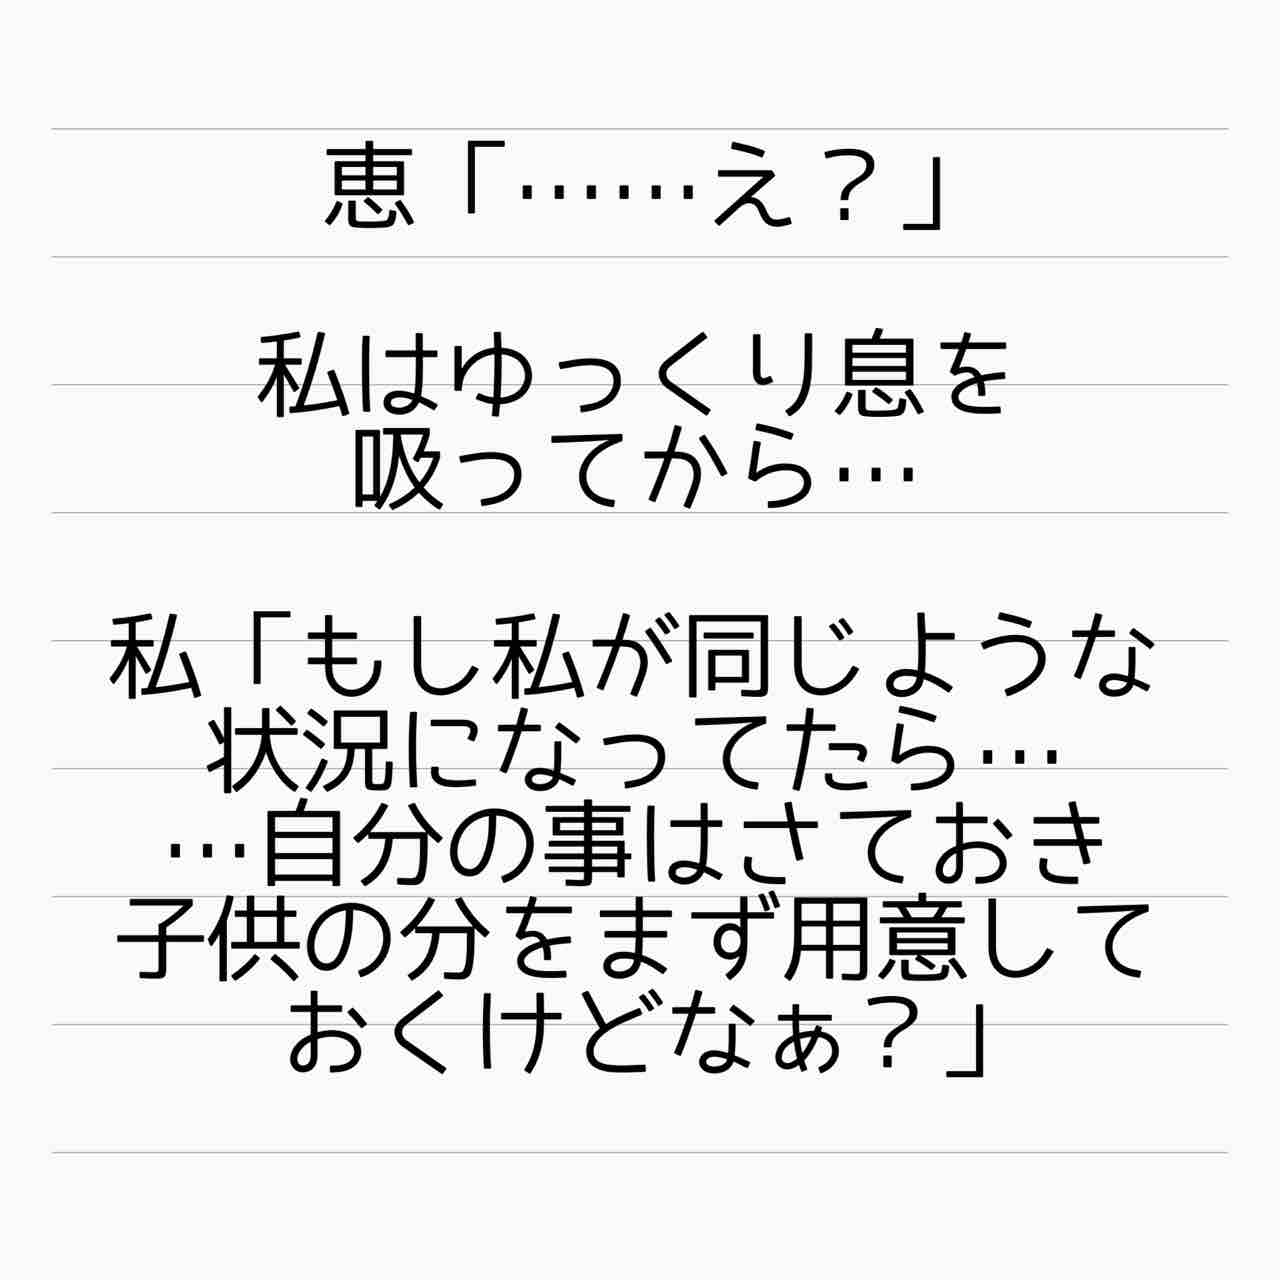 恵「……え？」
私はゆっくり息を
吸ってから…
私「もし私が同じような
状況になってたら…
…自分の事はさておき
子供の分をまず用意して
おくけどなぁ？」